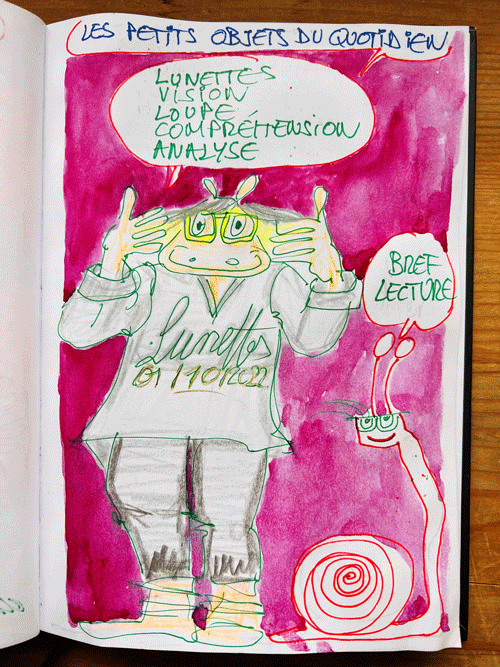 LES PETITS OBJETS DU QUOTIDIEN
LUNETTES
VISION
LOUPE
COMPRÉHENSION
ANALYSE
BREF
LECTURE
Lunettes
01/10/2022